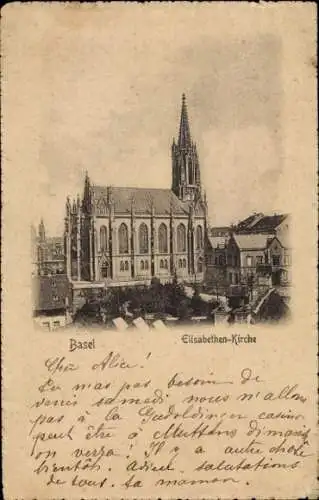 Basel
Elisabethen-Kirche
Chr Alice!
Tu n'as pas besoin de
venir samedi nous n'allons
pas à la casino
peut être à Muttenz dimanche
on verra! Il y a autre chose
bientôt. Adieu. salutations
de tous. ta maman.